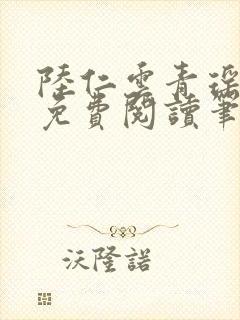 陸仁雲青瑤
免費閱讀筆
沃隆諾